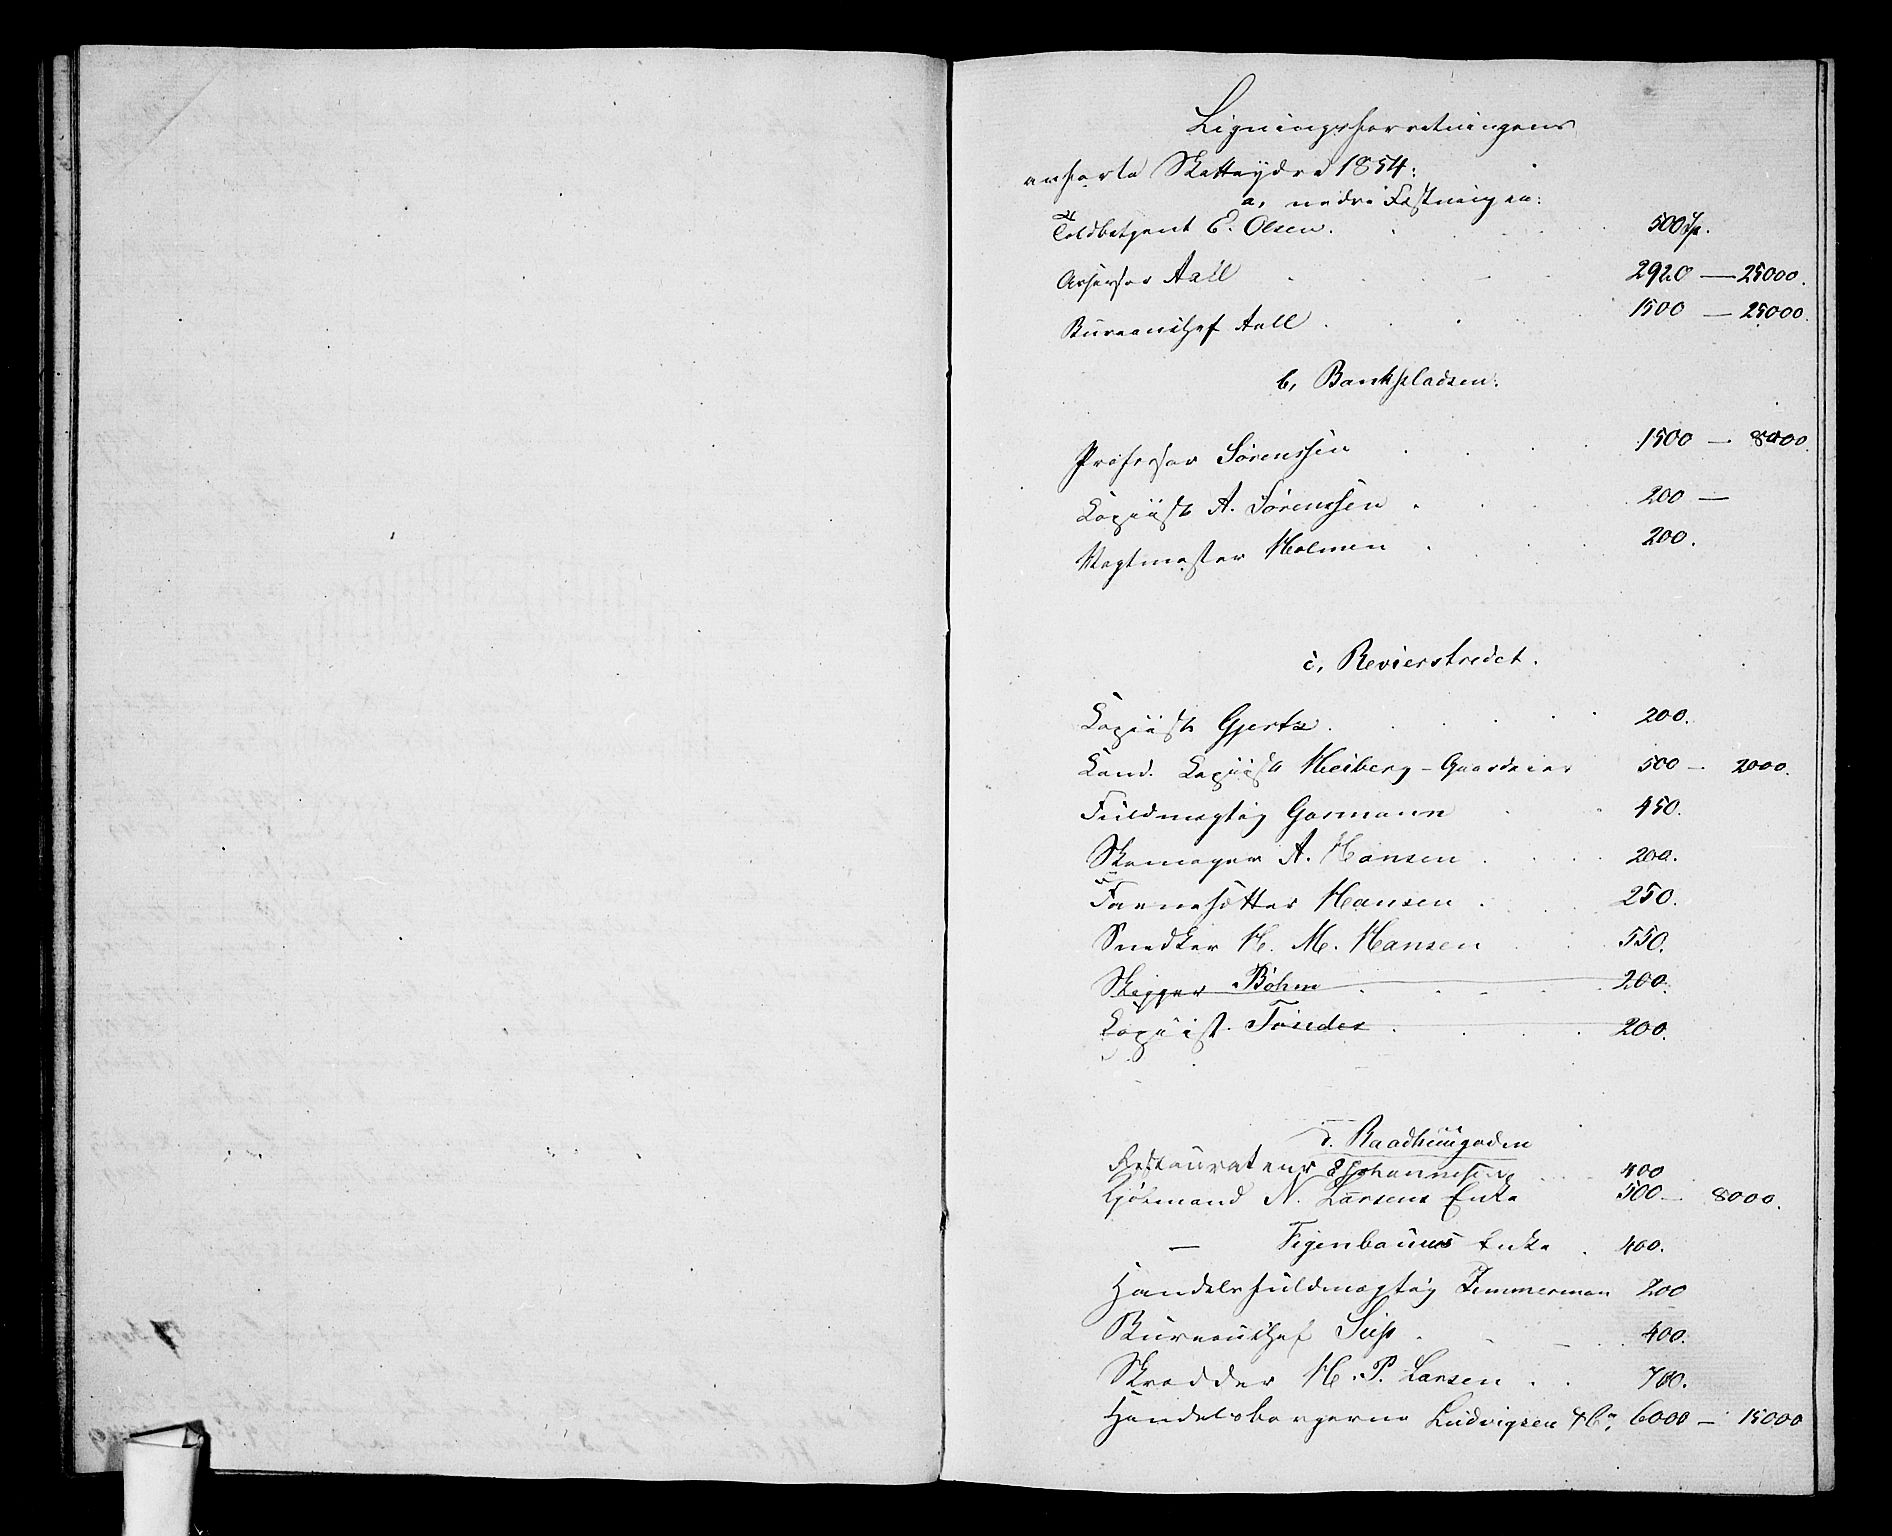 Ligningsforretningens
anførte Skatteydre 1854:
a, nedre Fæstningen:
Toldbetjent E. Olsen. 500 Sp.
Assessor Aall 2920 — 25000.
Bureauchef Aall 1500 — 25000.
b, Bankpladsen:
Professor Sørenssen 1500 — 8000.
Kopiist A. Sørenssen 200 —
Vagtmester Holmen 200.
c, Revierstredet.
Kopiist Gjertz 200.
Cand. Kopiist Heiberg - Gaardeier 500 — 2000.
Fuldmægtig Garmann 450.
Skomager A. Hansen 200.
Hansen 250.
Snedker H. M. Hansen 550.
Skipper Bøhm 200.
Kopiist Tønder 200.
d. Raadhuusgaden
Restaurateur E Johannesen 400
Kjøbmand N. Larsens Enke 500 — 8000.
— Figenbaums Enke 400.
Handelsfuldmægtig Zimmerman 200
Bureauchef 400.
Skrædder H. P. Larsen 700.
Handelsborgerne Ludvigsen & Co, 6000 — 15000